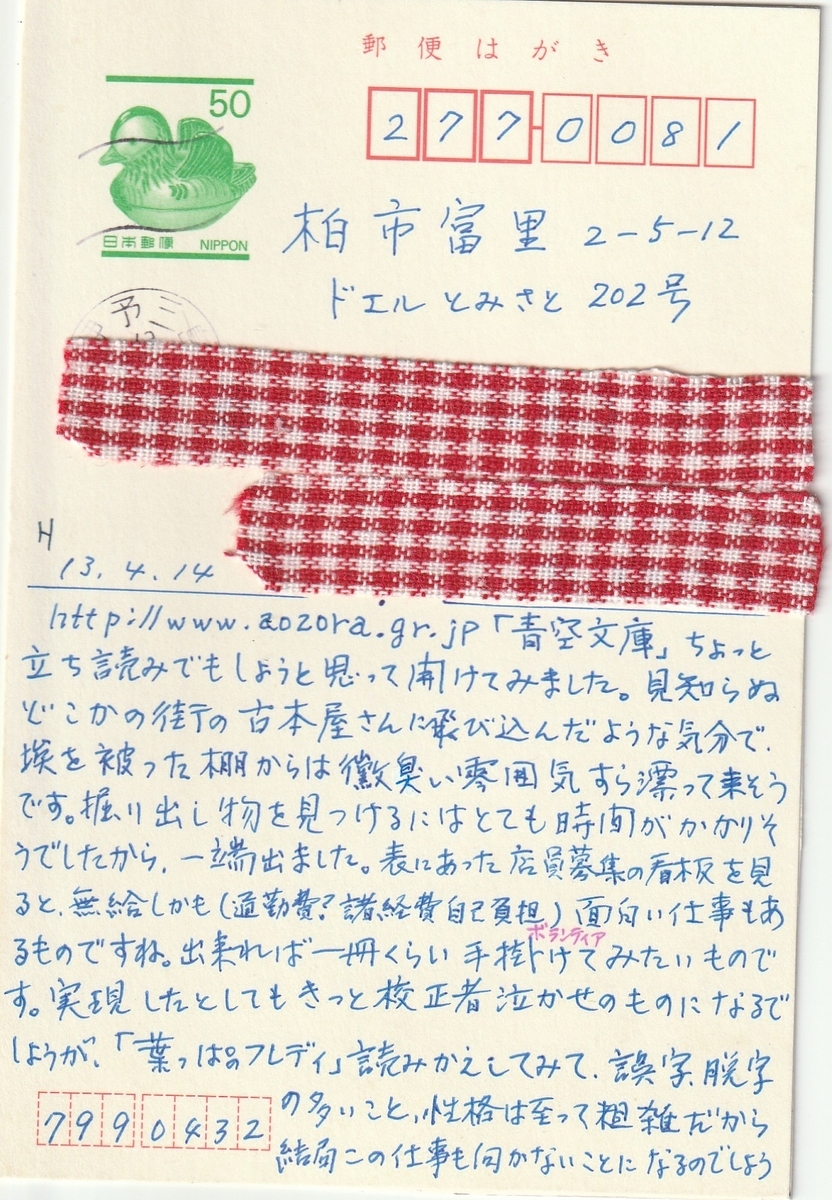 郵便はがき
50
日本郵便 NIPPON
277-0081
柏市富里 2-5-12
ドエルとみさと 202号
予三
H
13.4.14
http://www.aozora.gr.jp「青空文庫」ちょっと
立ち読みでもしようと思って開けてみました。見知らぬ
どこかの街の古本屋さんに飛び込んだような気分で、
埃を被った棚からは黴臭い雰囲気すら漂って来そう
です。掘り出し物を見つけるにはとても時間がかかりそ
うでしたから、一端出ました。表にあった店員募集の看板を見
ると、無給しかも(通勤費?諸経費自己負担)面白い仕事もあ
ボランティア
るものですね。出来れば一冊くらい手掛けてみたいもので
す。実現したとしてもきっと校正者泣かせのものになるで
しょうが、「葉っぱのフレディ」読みかえしてみて、誤字、脱字
の多いこと、性格は至って粗雑だから
結局この仕事も向かないことになるのでしょう
7990432